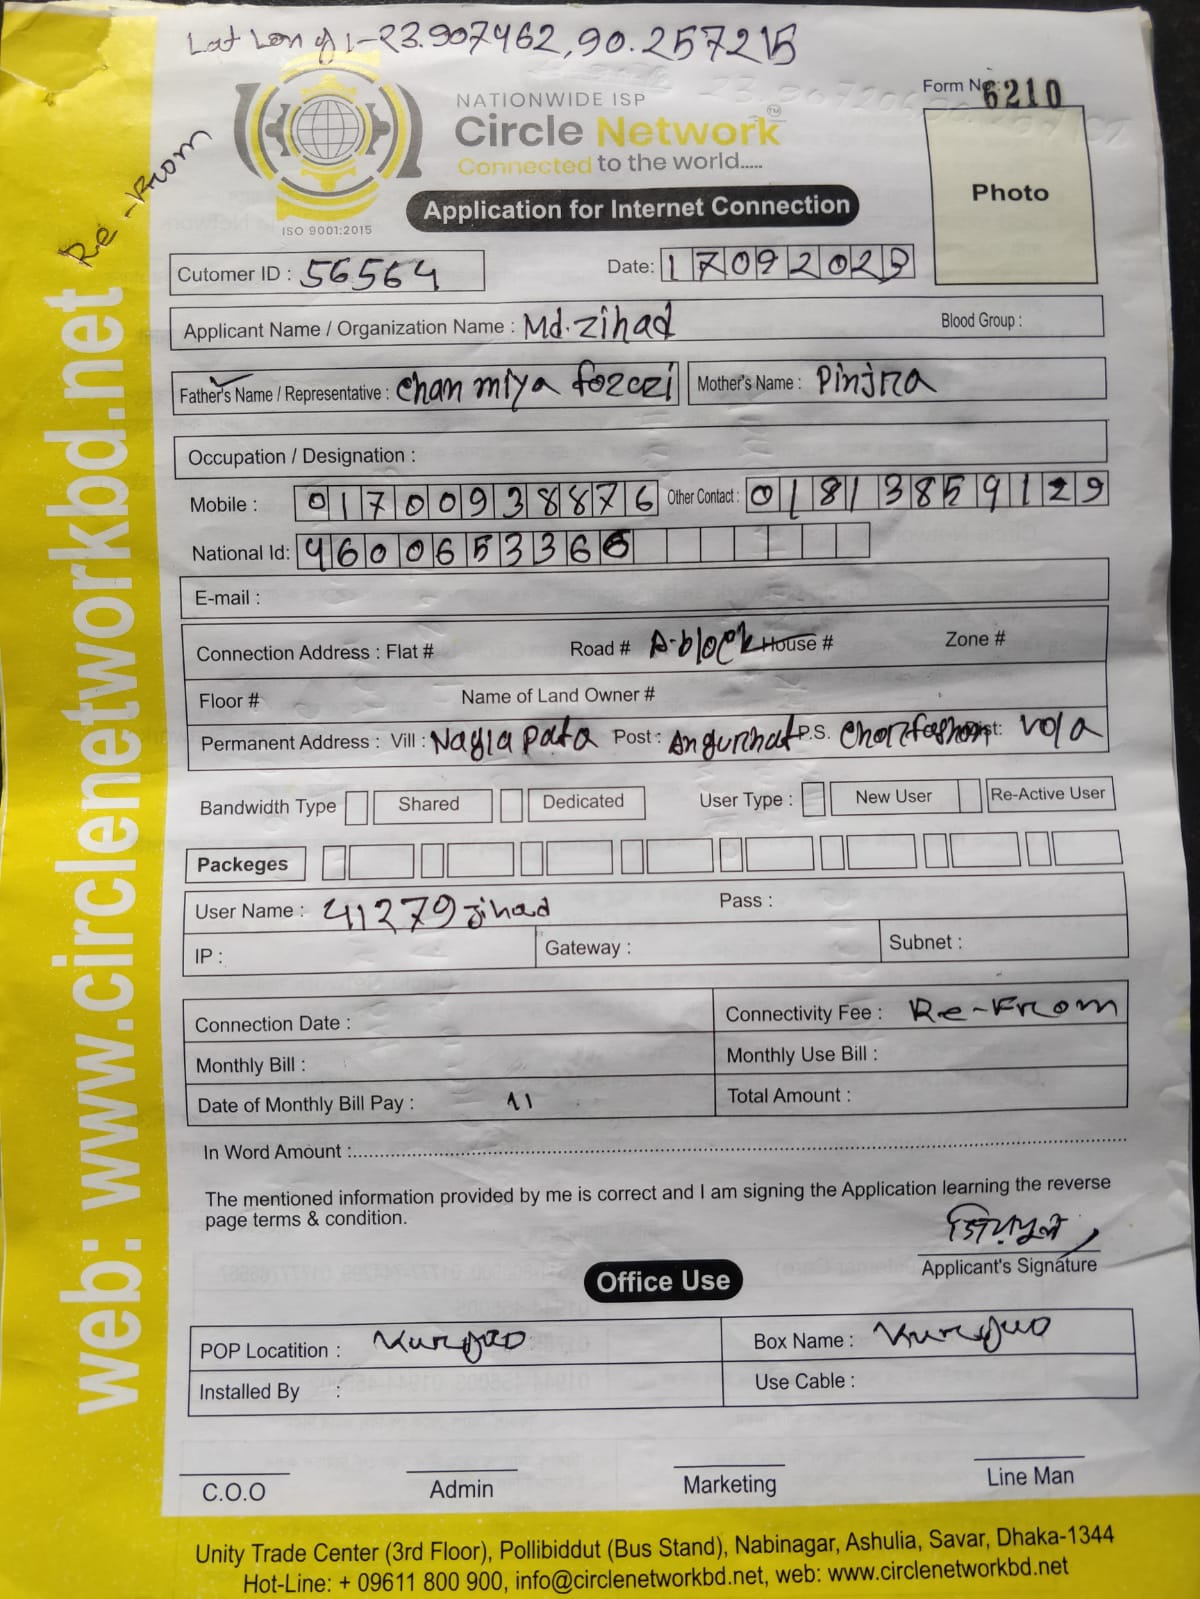 Lat Long :- 23.907462, 90.257215
Form No: 6210
NATIONWIDE ISP
Circle Network TM
Connected to the world.....
ISO 9001:2015
Re-From
Application for Internet Connection
Photo
Cutomer ID : 56564 Date: 17092023
Applicant Name / Organization Name : Md. Zihad Blood Group :
Father's Name / Representative : Chan miya forazi Mother's Name : Pinjra
Occupation / Designation :
Mobile : 01700938876 Other Contact : 01813859129
National Id: 4600653366
E-mail :
Connection Address : Flat # Road # A-block House # Zone #
Floor # Name of Land Owner #
Permanent Address : Vill : Nayla pata Post : Angurhat P.S. Chorfashon Dist: Vola
Bandwidth Type Shared Dedicated User Type : New User Re-Active User
Packeges
User Name : 41279jihad Pass :
IP : Gateway : Subnet :
Connection Date : Connectivity Fee : Re-From
Monthly Bill : Monthly Use Bill :
Date of Monthly Bill Pay : 11 Total Amount :
In Word Amount :
The mentioned information provided by me is correct and I am signing the Application learning the reverse
page terms & condition.
Applicant's Signature
Office Use
POP Locatition : Kurgao Box Name : Kurgao
Installed By : Use Cable :
C.O.O Admin Marketing Line Man
Unity Trade Center (3rd Floor), Pollibiddut (Bus Stand), Nabinagar, Ashulia, Savar, Dhaka-1344
Hot-Line: + 09611 800 900, info@circlenetworkbd.net, web: www.circlenetworkbd.net
web: www.circlenetworkbd.net